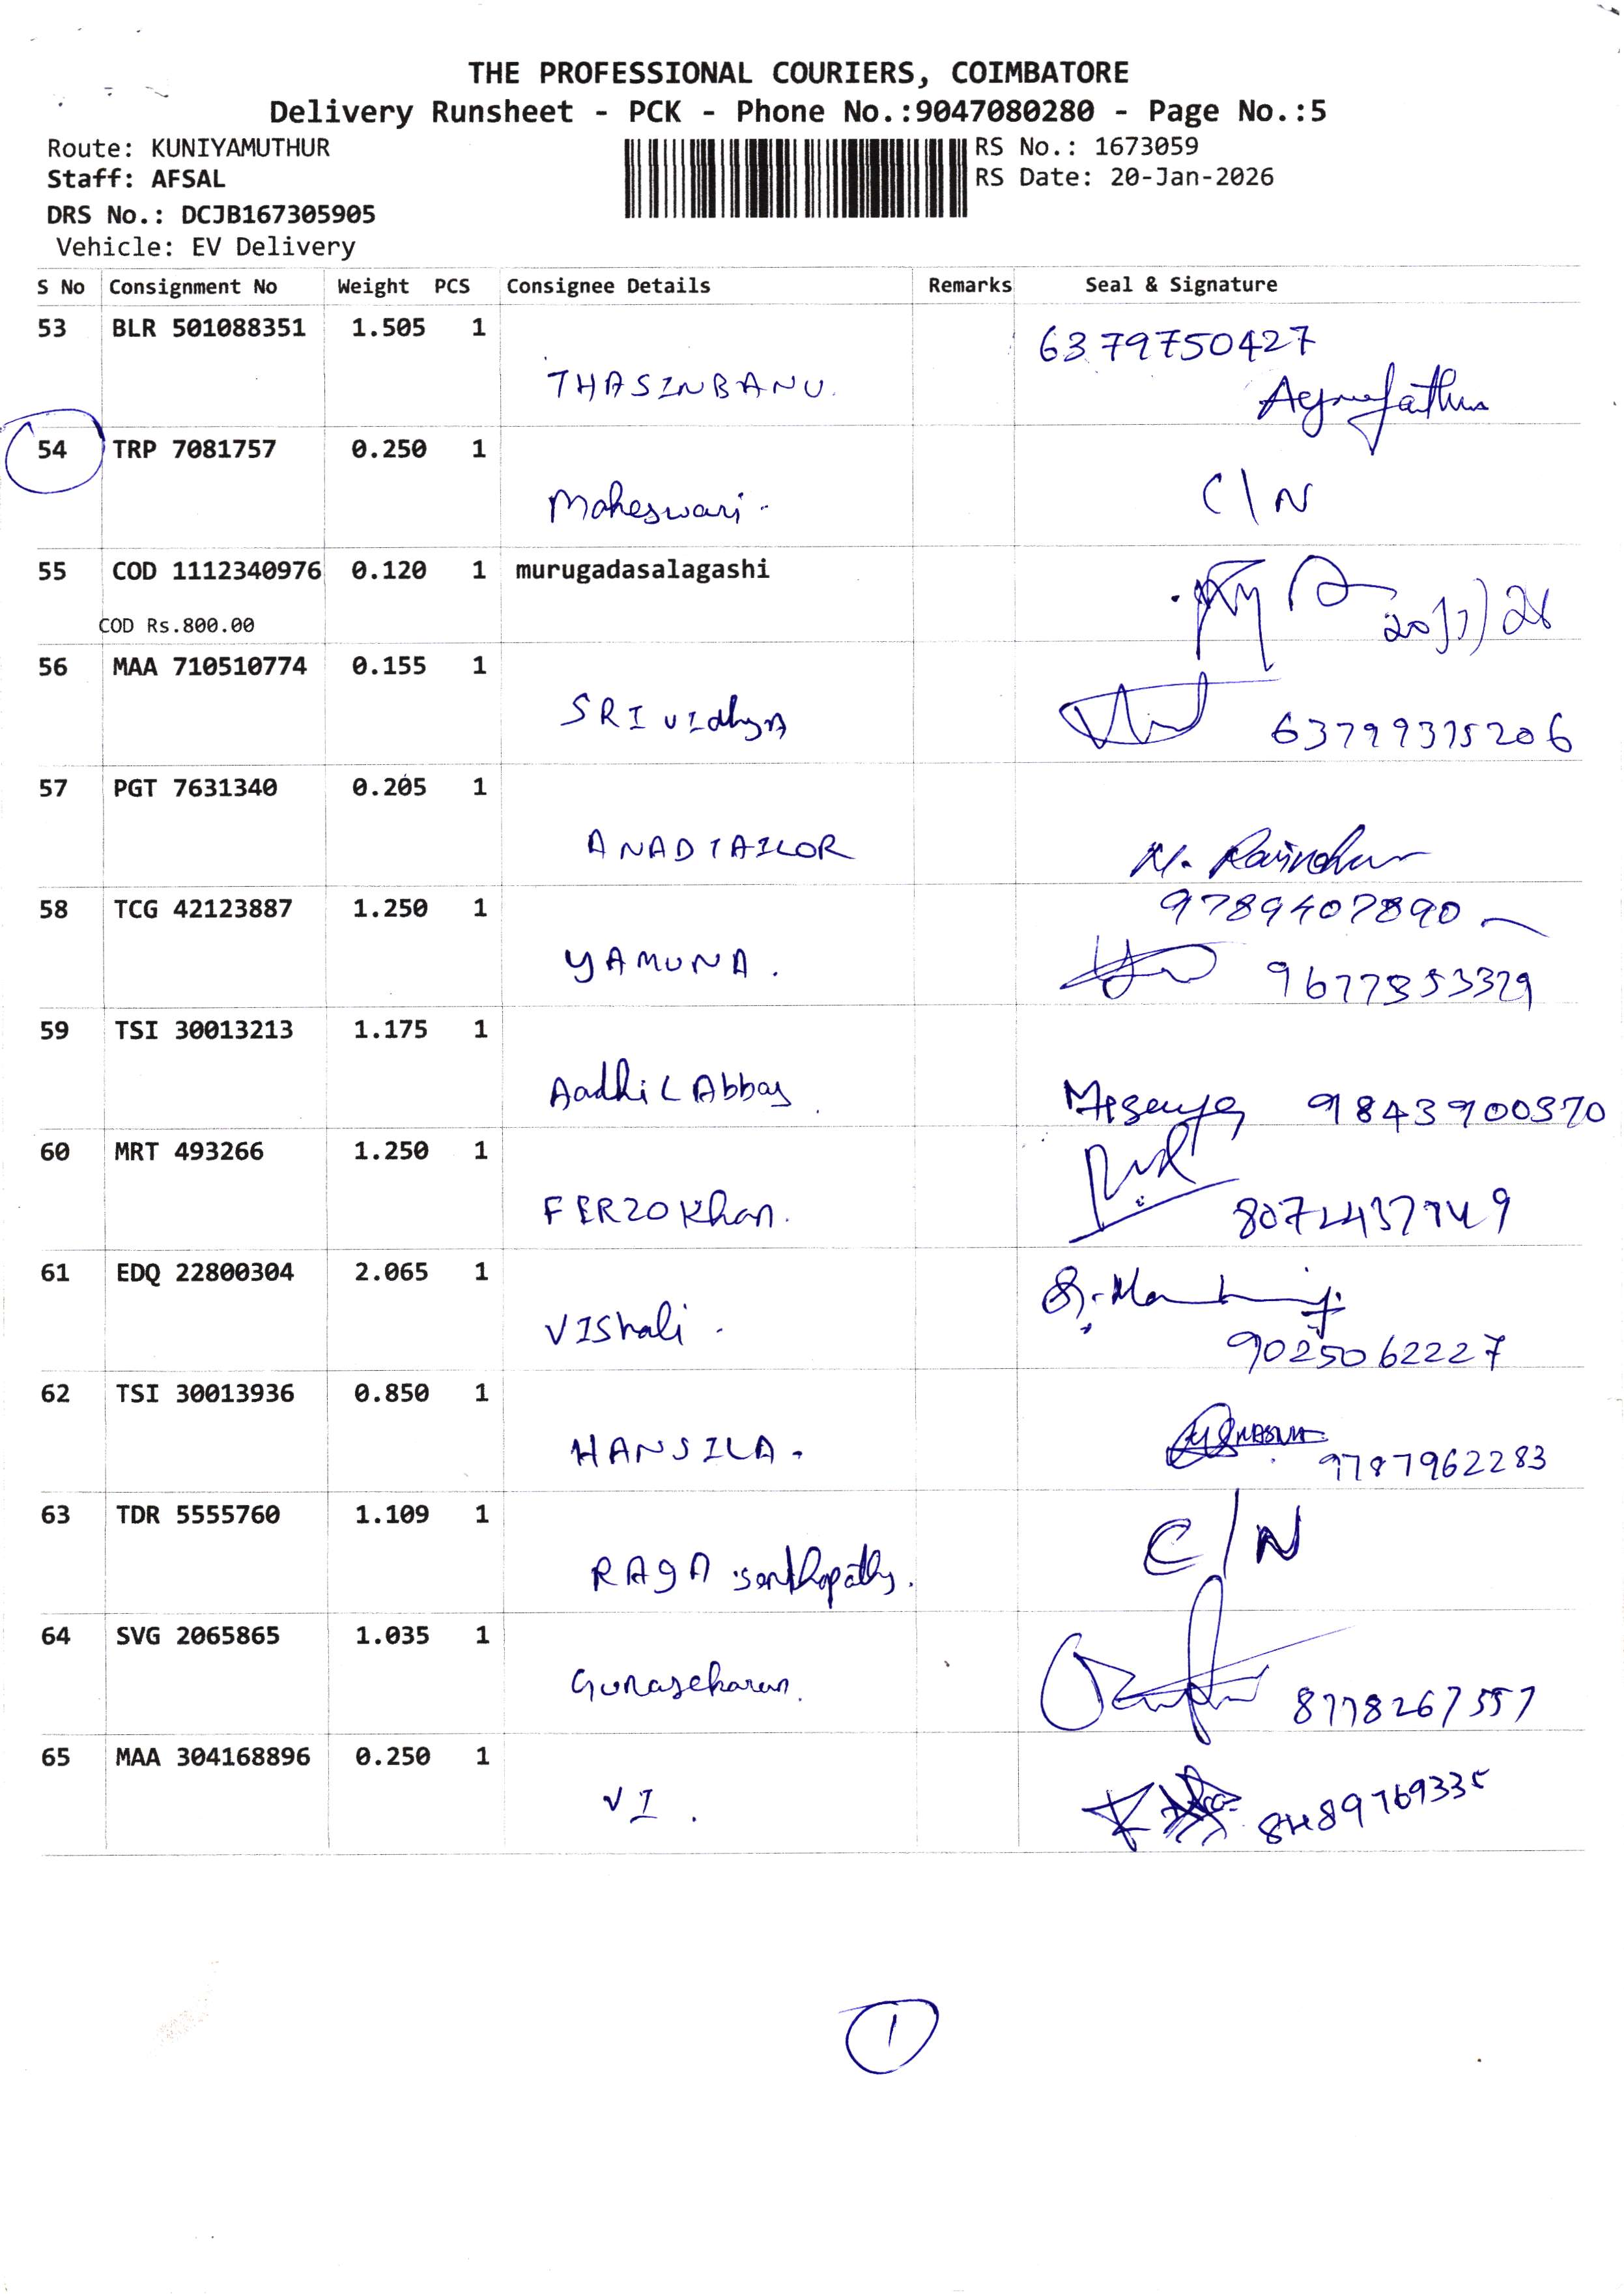 THE PROFESSIONAL COURIERS, COIMBATORE
Delivery Runsheet - PCK - Phone No.:9047080280 - Page No.:5
Route: KUNIYAMUTHUR
RS No.: 1673059
Staff: AFSAL
RS Date: 20-Jan-2026
DRS No.: DCJB167305905
Vehicle: EV Delivery
S No Consignment No Weight PCS Consignee Details Remarks Seal & Signature
53 BLR 501088351 1.505 1
6379750427
THASINBANU.
54 TRP 7081757 0.250 1
Maheswari.
C/N
55 COD 1112340976 0.120 1 murugadasalagashi
20/1/26
COD Rs.800.00
56 MAA 710510774 0.155 1
SRI vIdhyA
63799375206
57 PGT 7631340 0.205 1
ANADTAILOR
N.
58 TCG 42123887 1.250 1
9789407890
YAMUNA.
9677853329
59 TSI 30013213 1.175 1
Aadhil Abbas
9843900370
60 MRT 493266 1.250 1
FERZOKhan.
61 EDQ 22800304 2.065 1
VIShali.
9025062227
62 TSI 30013936 0.850 1
HANSILA.
9787962283
63 TDR 5555760 1.109 1
C/N
RAgA
64 SVG 2065865 1.035 1
Gunasekaran.
8778267557
65 MAA 304168896 0.250 1
VI.
8489769335
1